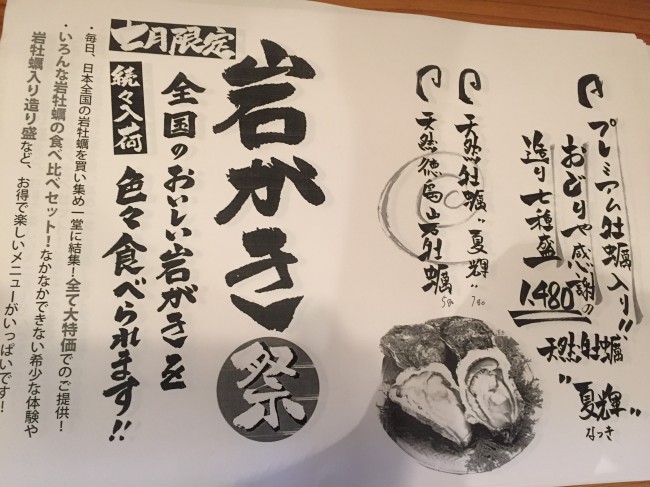 プレミアム牡蠣入り!!
おどりや感謝の
造り七種盛
1.480
天然牡蠣
"夏輝"
なつき
天然牡蠣"夏輝" 780
天然徳島岩牡蠣 580
岩がき祭
七月限定
続々入荷
全国のおいしい岩がきを
色々食べられます!!
・毎日、日本全国の岩牡蠣を買い集め一堂に結集!全て大特価でのご提供!
・いろんな岩牡蠣の食べ比べセット!なかなかできない希少な体験や
岩牡蠣入り造り盛など、お得で楽しいメニューがいっぱいです!